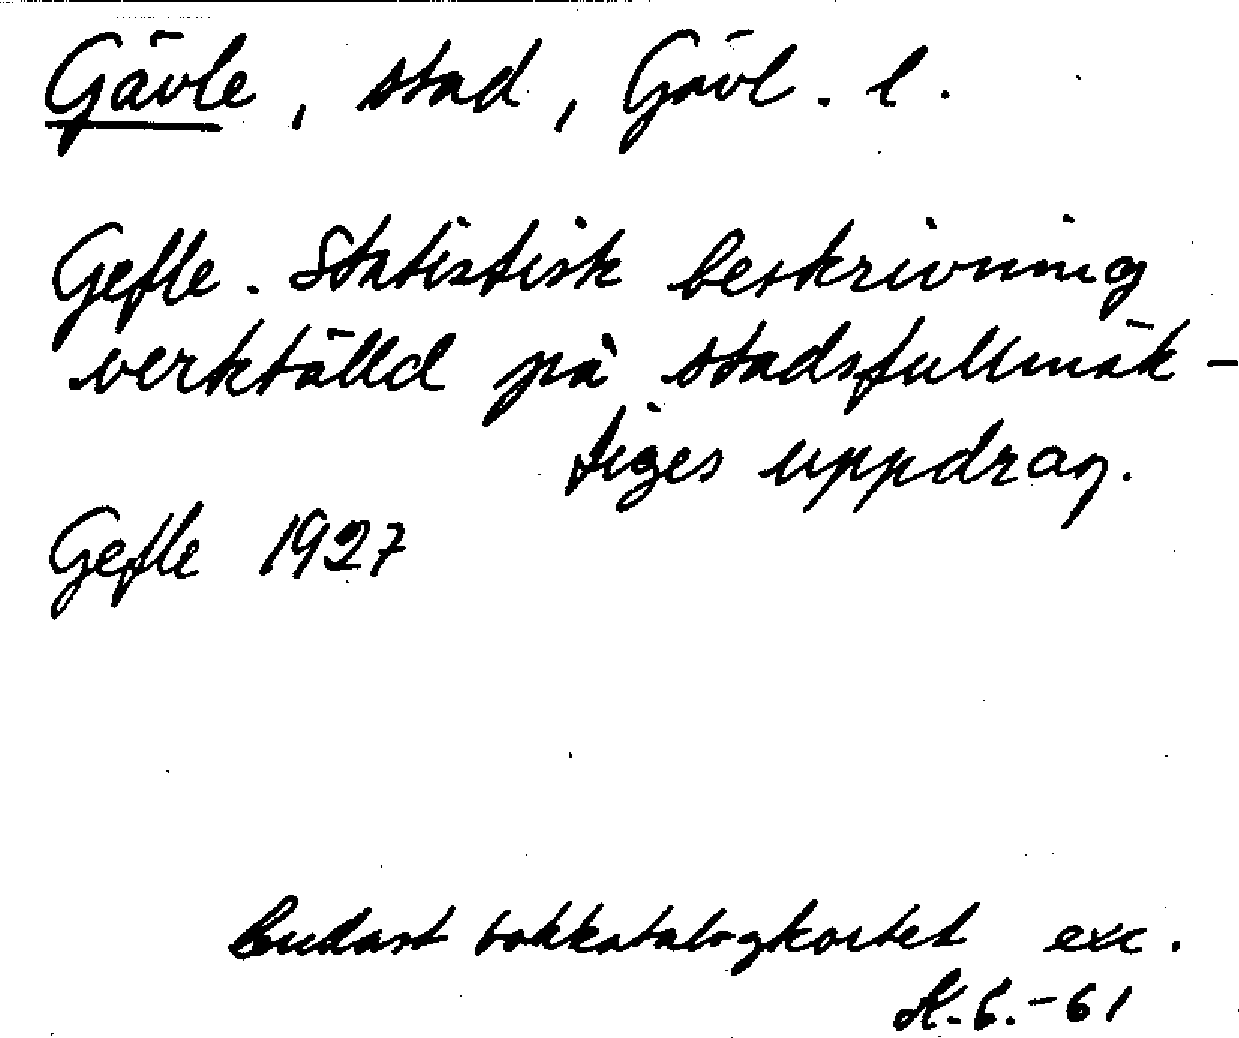 Gävle, stad, Gävl. l.
Gefle. Statistisk beskrivning
verkställd på stadsfullmäk-
tiges uppdrag.
Gefle 1927
Endast bokkatalogkortet exc.
-61